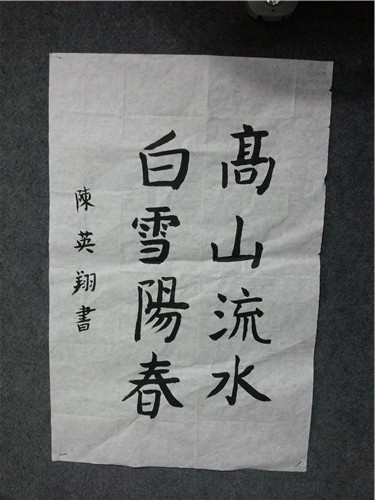 髙山流水
白雪陽春
陳英翔書